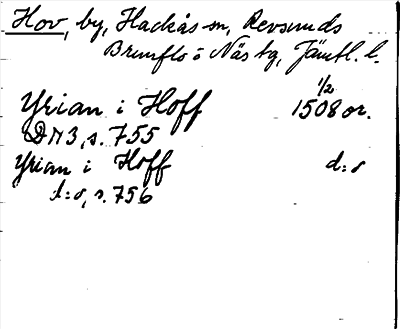 Hov, by, Hackås sn, Revsunds
Brunflo o Näs tg, Jämtl. l.
Yrian i Hoff 1/2 1508 or.
DN 3, s. 755
Yrian i Hoff d:o
d:o, s. 756